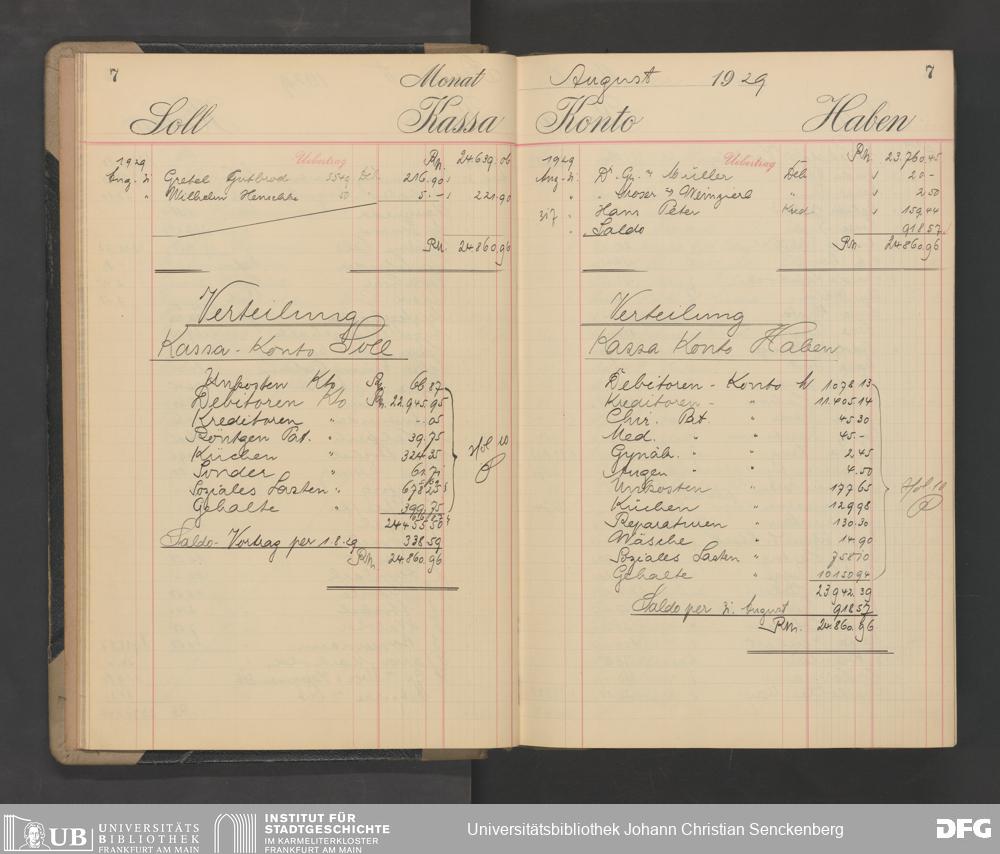 7
Monat
Soll
Kassa
1929
Uebertrag
RM. 24639.06
Aug.
Gretel Gutbrod 216.90
" Wilhelm Henschke 50 5.- 221 90
RM. 24860.96
Verteilung
Kassa-Konto Soll
Unkosten Kto
Debitoren Kto RM. 22.945.95
Kreditoren " -.05
Röntgen Pat. " 39.75
Küchen " 324.35
Sonder "
Soziales Lasten "
Gehalte " 399.75
Saldo-Vortrag per 1.8.29 338.59
RM 24.860.96
August 1929
7
Konto
Haben
1929
Uebertrag
RM. 23.760.45
Aug.
Dr. Gr. " Müller Deb. 20 -
" " Moser " " 2.50
Hans Peter Kred. 159.44
" Saldo 918.57
RM. 24860.96
Verteilung
Kassa Konto Haben
Debitoren-Konto 1078.13
Kreditoren- " 11.405.14
Chir. Pat. " 45.30
Med. " " 45.-
Gynäk. " " 2.45
Augen " " 4.50
Unkosten " 177.65
Küchen " 129.98
Reparaturen " 130.30
Wäsche " 14.90
Soziales Lasten " 758.10
Gehalte " 10150.94
23.942.39
Saldo per August 918.57
RM. 24.860.96
UB UNIVERSITÄTS
BIBLIOTHEK
FRANKFURT AM MAIN
INSTITUT FÜR
STADTGESCHICHTE
IM KARMELITERKLOSTER
FRANKFURT AM MAIN
Universitätsbibliothek Johann Christian Senckenberg
DFG